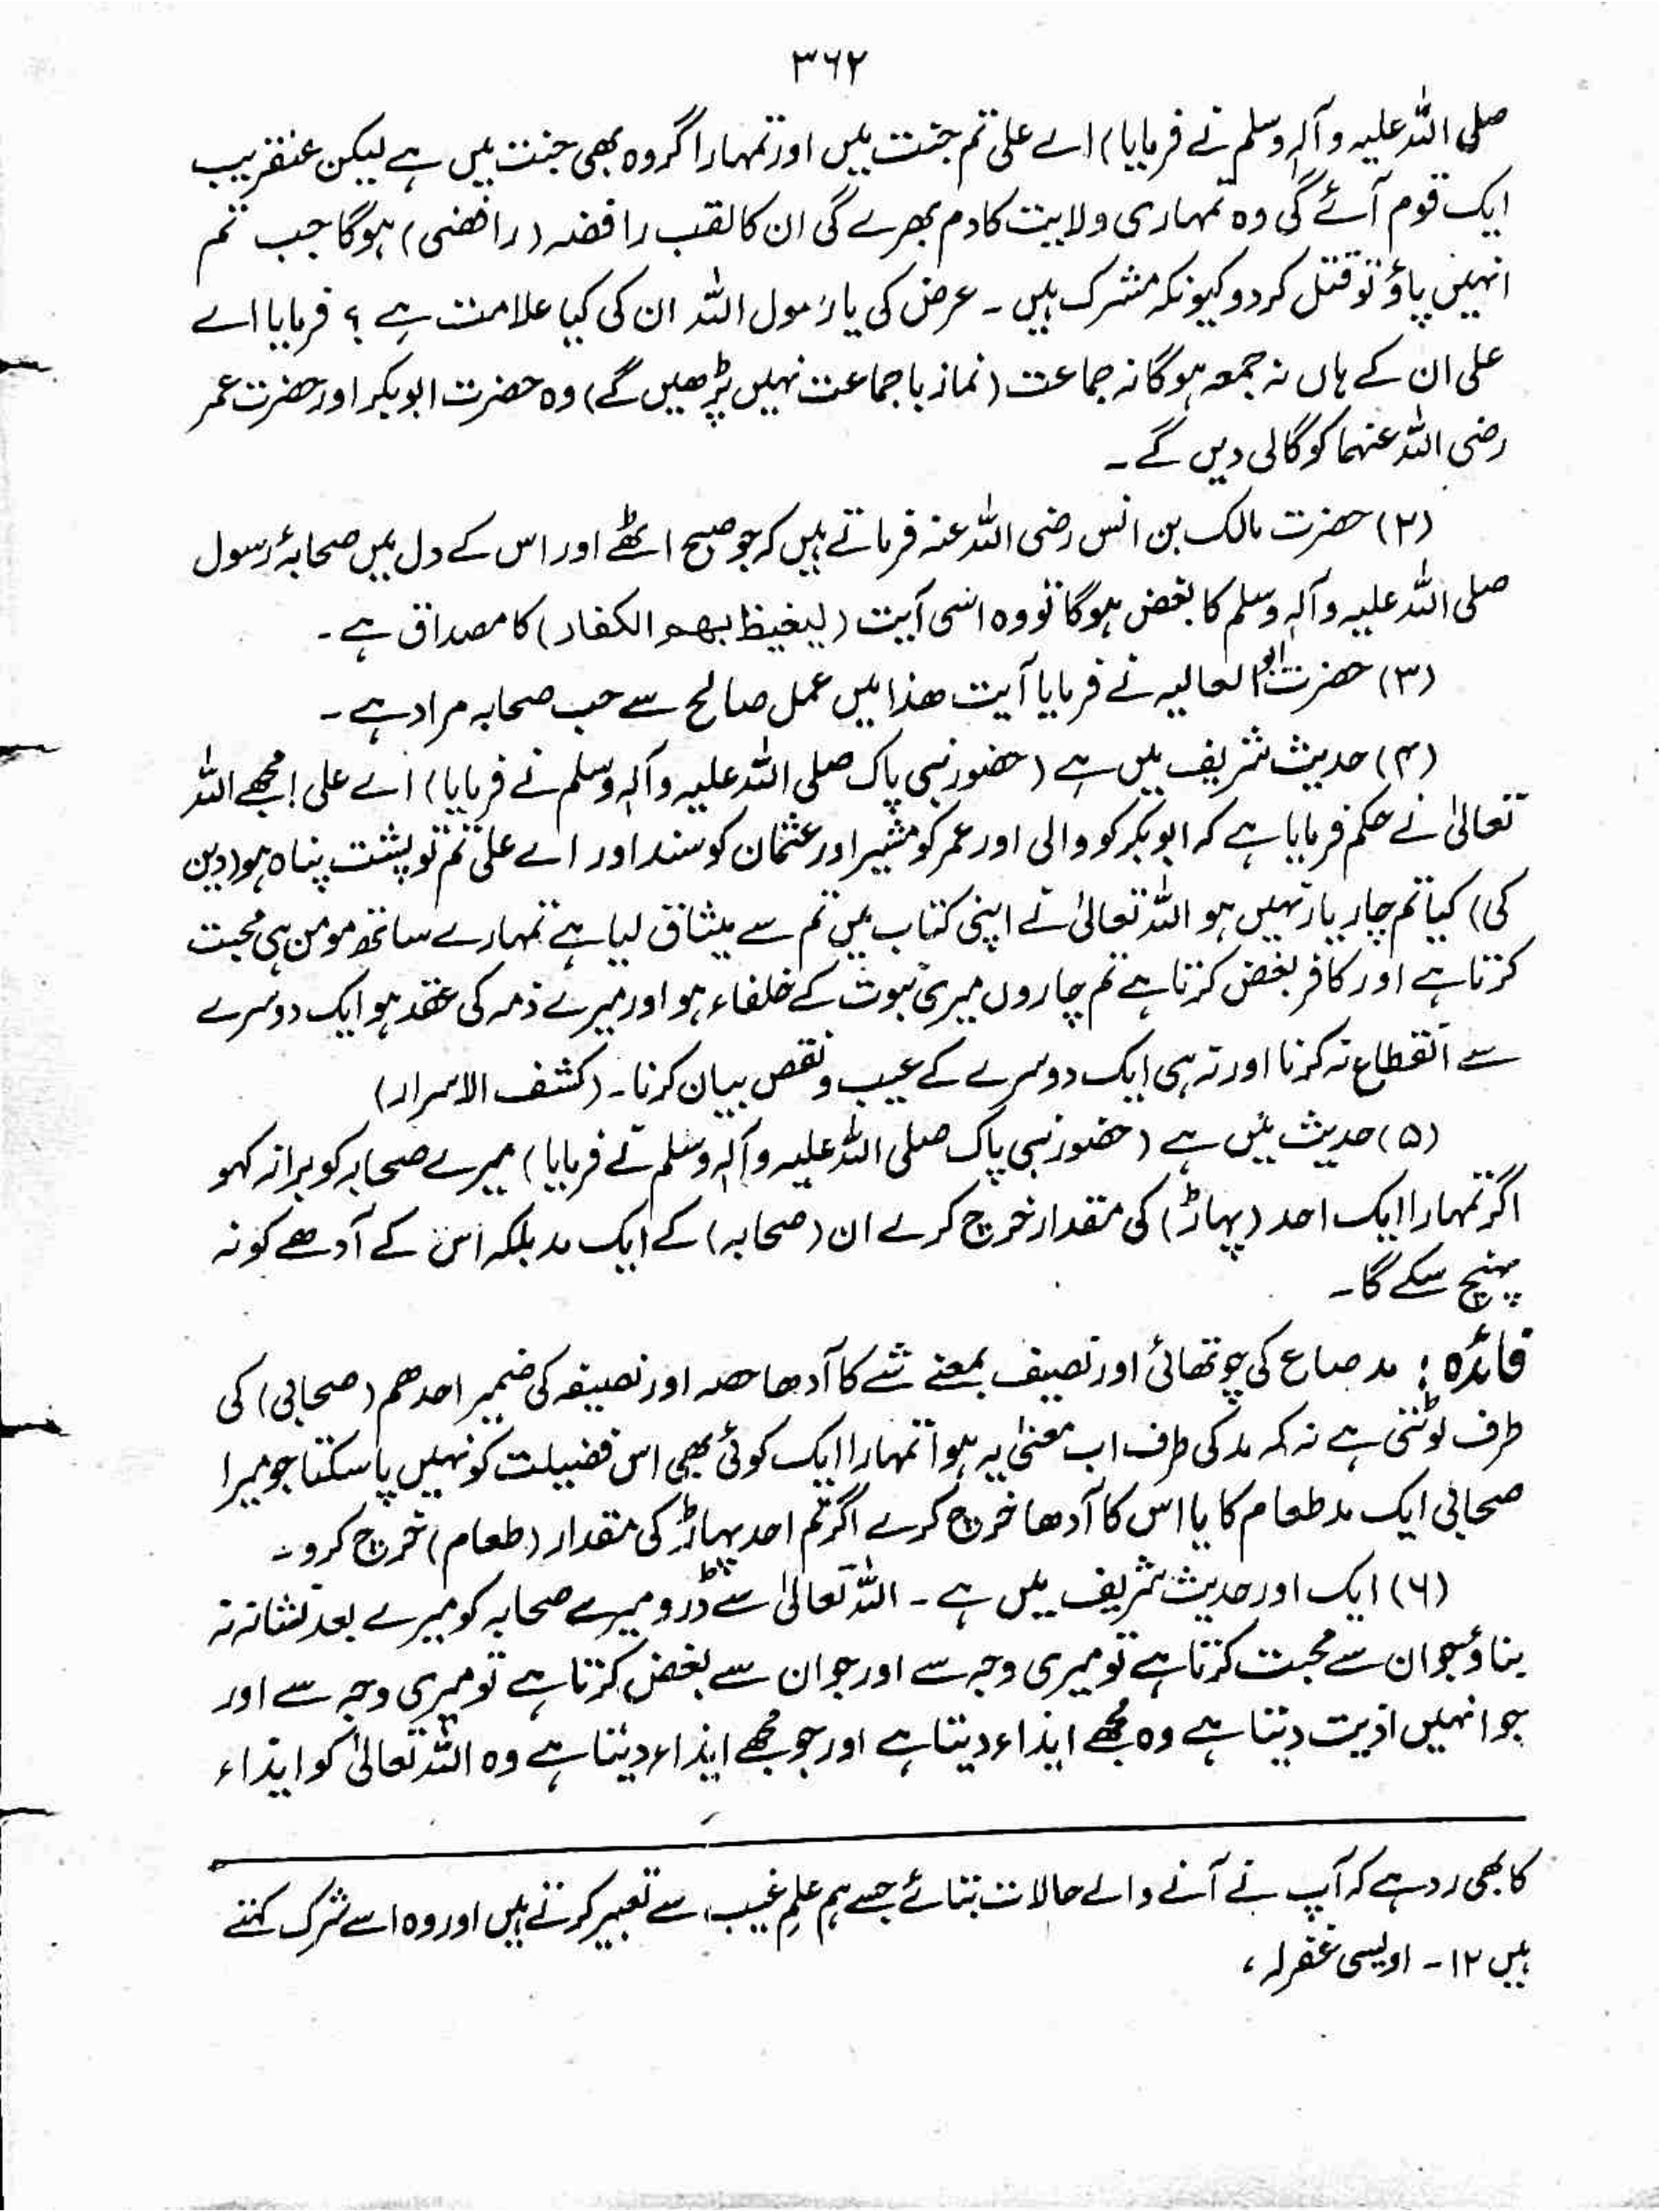 ۳۶۲
صلی اللہ علیہ وآلہٖ وسلم نے فرمایا) اے علی تم جنت میں اور تمہارا گروہ بھی جنت میں ہے لیکن عنقریب
ایک قوم آئے گی وہ تمہاری ولایت کا دم بھرے گی ان کا لقب رافضہ (رافضی) ہوگا جب تم
انہیں پاؤ تو قتل کردو کیونکہ مشرک ہیں ۔ عرض کی یا رسول اللہ ان کی کیا علامت ہے ؟ فرمایا اے
علی ان کے ہاں نہ جمعہ ہوگا نہ جماعت (نماز با جماعت نہیں پڑھیں گے) وہ حضرت ابوبکر اور حضرت عمر
رضی اللہ عنہما کو گالی دیں گے ۔
(۲) حضرت مالک بن انس رضی اللہ عنہ فرماتے ہیں کہ جو صبح اٹھے اور اس کے دل میں صحابۂ رسول
صلی اللہ علیہ وآلہٖ وسلم کا بغض ہوگا تو وہ اسی آیت (لیغیظ بھم الکفار) کا مصداق ہے ۔
(۳) حضرت ابو العالیہ نے فرمایا آیت ھذا میں عمل صالح سے حب صحابہ مراد ہے ۔
(۴) حدیث شریف میں ہے (حضور نبی پاک صلی اللہ علیہ وآلہٖ وسلم نے فرمایا) اے علی! مجھے اللہ
تعالیٰ نے حکم فرمایا ہے کہ ابوبکر کو والی اور عمر کو مشیر اور عثمان کو سند اور اے علی تم تو پشت پناہ ہو (دین
کی) کیا تم چار یار نہیں ہو اللہ تعالیٰ نے اپنی کتاب میں تم سے میثاق لیا ہے تمہارے ساتھ مومن ہی محبت
کرتا ہے اور کافر بغض کرتا ہے تم چاروں میری نبوت کے خلفاء ہو اور میرے ذمہ کی عقد ہو ایک دوسرے
سے انقطاع نہ کرنا اور نہ ہی ایک دوسرے کے عیب و نقص بیان کرنا ۔ (کشف الاسرار)
(۵) حدیث میں ہے (حضور نبی پاک صلی اللہ علیہ وآلہٖ وسلم نے فرمایا) میرے صحابہ کو برا نہ کہو
اگر تمہارا ایک احد (پہاڑ) کی مقدار خرچ کرے ان (صحابہ) کے ایک مد بلکہ اس کے آدھے کو نہ
پہنچ سکے گا ۔
فائدہ : مد صاع کی چوتھائی اور نصیف بمعنے شے کا آدھا حصہ اور نصیفہ کی ضمیر احدھم (صحابی) کی
طرف لوٹتی ہے نہ کہ مد کی طرف اب معنیٰ یہ ہوا تمہارا ایک کوئی بھی اس فضیلت کو نہیں پا سکتا جو میرا
صحابی ایک مد طعام کا یا اس کا آدھا خرچ کرے اگر تم احد پہاڑ کی مقدار (طعام) خرچ کرو ۔
(۶) ایک اور حدیث شریف میں ہے ۔ اللہ تعالیٰ سے ڈرو میرے صحابہ کو میرے بعد نشانہ نہ
بناؤ جو ان سے محبت کرتا ہے تو میری وجہ سے اور جو ان سے بغض کرتا ہے تو میری وجہ سے اور
جو انہیں اذیت دیتا ہے وہ مجھے ایذاء دیتا ہے اور جو مجھے ایذاء دیتا ہے وہ اللہ تعالیٰ کو ایذاء
کا بھی رد ہے کہ آپ نے آنے والے حالات بتائے جسے ہم علمِ غیب سے تعبیر کرتے ہیں اور وہ اسے شرک کہتے
ہیں ۱۲ ۔ اویسی غفرلہ ،